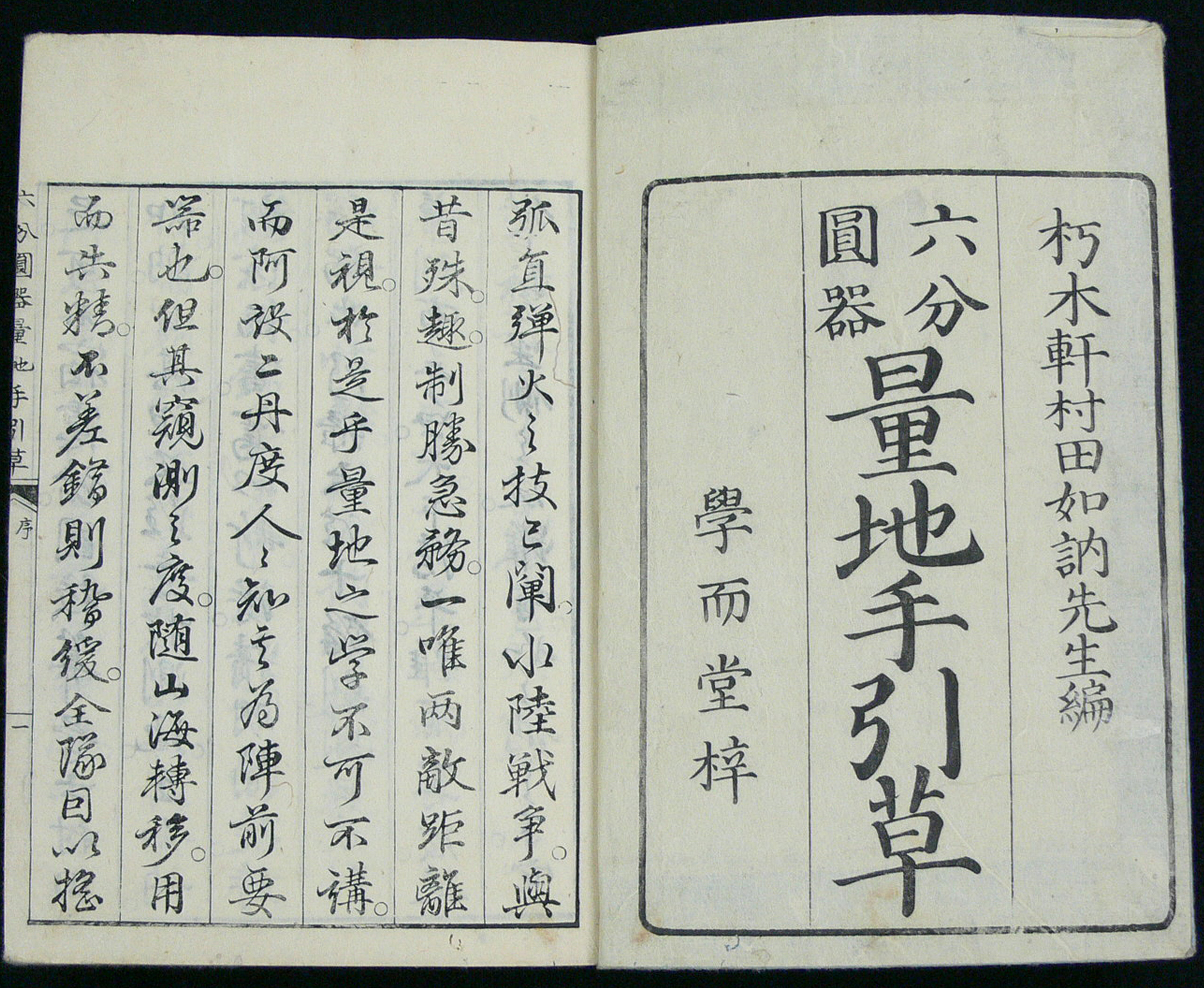 朽木軒村田如訥先生編
六分
圓器
量地手引草
學而堂梓
弧直弾火之技已闡。水陸戦争。與
昔殊。趣。制勝急務。一唯两敵距離
是視。於是乎量地之学不可不講。
而阿設二丹度人〻知其為陣前要
器也。但其窺測之度。随山海轉移。用
而失精。不差錯則稽緩。全隊因以搖
六分圓器量地手引草 序 一